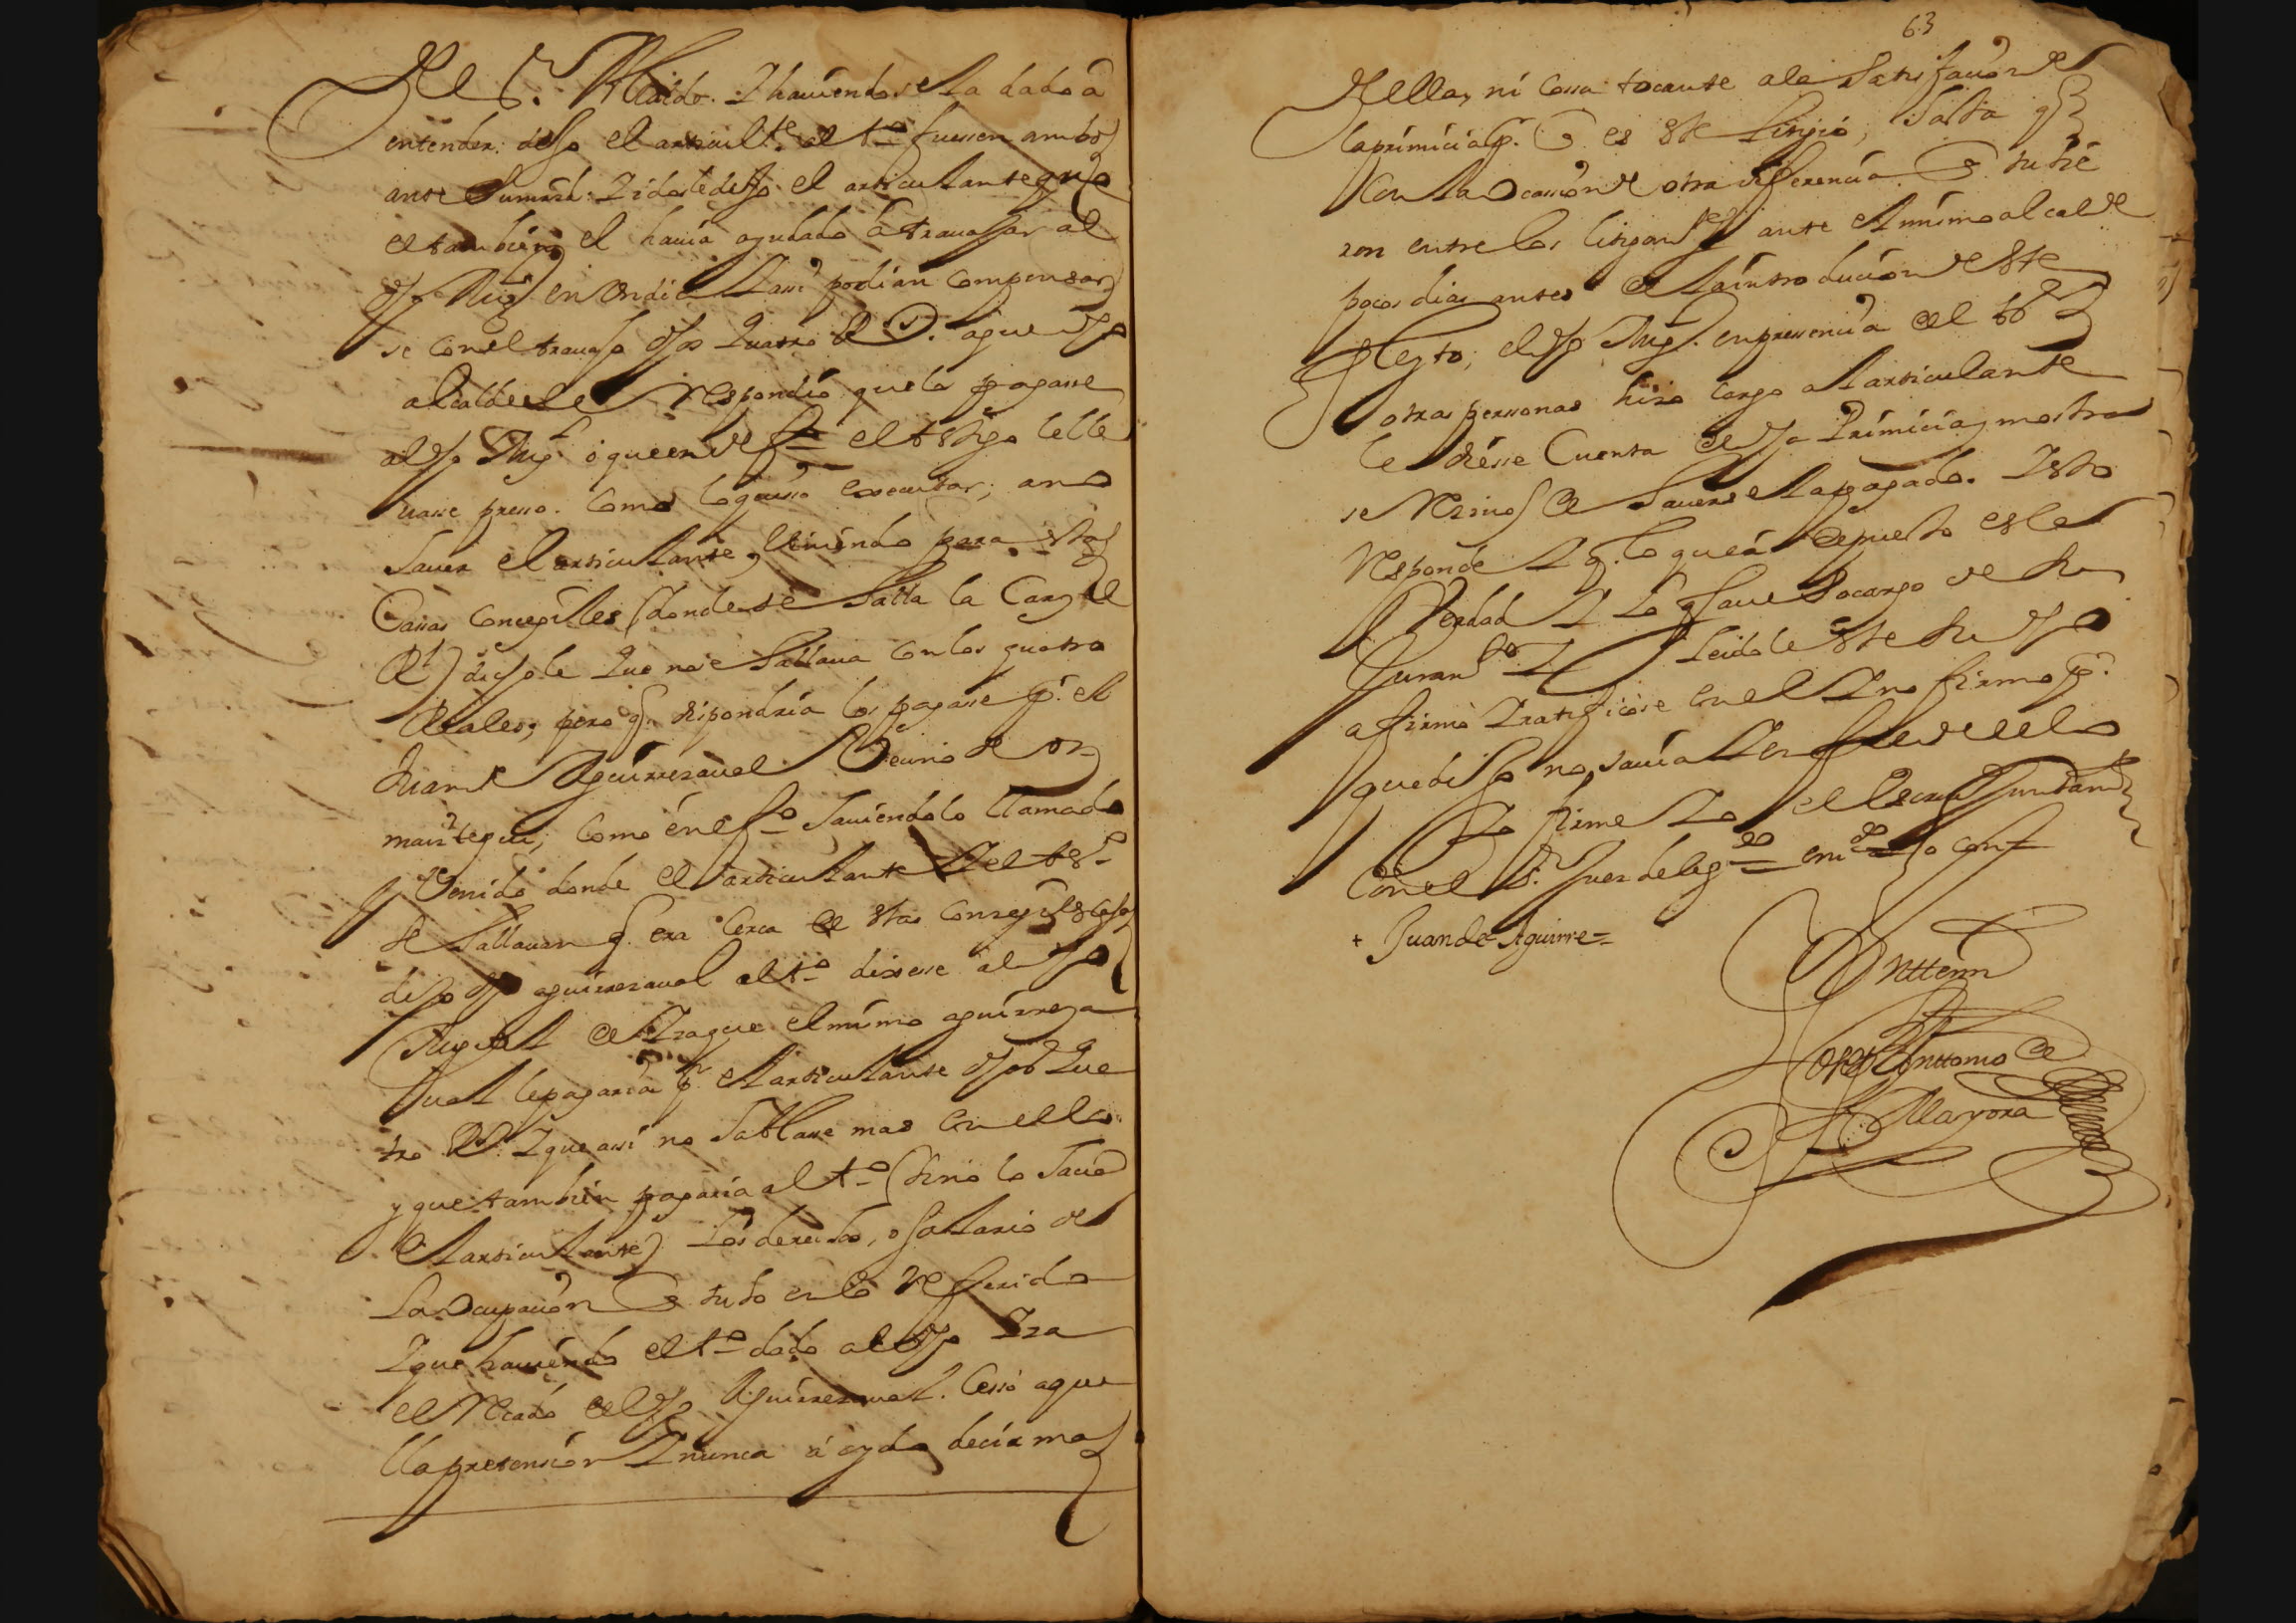 de el S.r Alcalde. Y hauiendosela dado a
entender: dijo el articul.te al t.o fuessen ambos
ante su mrd: Y idos le dijo el articulante que
el tambien el hauia ayudado a trauajar al
dho Mig.l en Vn dia y assi podian compensar
se con el trauajo dhos quatro R.s a que dho
alcalde le respondio que lo pagasse
al dho Mig.l o que en defto el testigo le lle
uasse presso. Como lo quisso executar; a no
hauer el articulante, viniendo para estas
Cassas concegiles (donde se halla la Carzel
R.l) dichole que no se hallaua con los quatro
Reales, pero q. dispondria los pagasse p.r el
Juan de Aguirrezaual Vecino de or
maiztegui; como en efto hauiendolo llamado
y Venido donde el articulante y el tes.o
se hallauan q. era cerca de estas concegiles casas
dijo dho aguirrezaual al t.o dixesse al dho
Miguel de Yra que el mismo aguirreza
ual le pagaria p.r el articulante dhos qua
tro R.s Y que assi no hablasse mas en ello
y que tambien pagaria al t.o (si no lo hacia
el articulante) los derechos, o salario de
la ocupacion q. tubo en lo referido
Y que hauiendo el t.o dado al dho Yra
el recado del dho Aguirrezaual. Cesso aque
lla pretension Y nunca a oydo decir mas
63
de ella, ni cossa tocante a la satisfacion de
la primicia q. es este litigio, hasta q.
con la ocassion de otra diferencia q. tubie
ron entre los litigantes ante el mismo alcalde
pocos dias antes de la introducion de este
Pleyto; el dho Mig.l en pressencia del t.o
y otras personas hizo cargo al articulante
le diesse Cuenta de dha Primicia, y mostra
se reciuos de hauersela pagado. Y esto
responde Y q. lo que a depuesto es la
Verdad Y lo q. saue so cargo de su
Juram.to Y leidole este su dho
afirmo Y ratificose en el Y no firmo p.r
que dijo no sauia Y en fee de ello
lo firme Yo el Escriu.o Juntam.te
con el S.r Juez deleg.do
+ Juan de Aguirre =
Anttemi
Joseph Anttonio de
Mayora